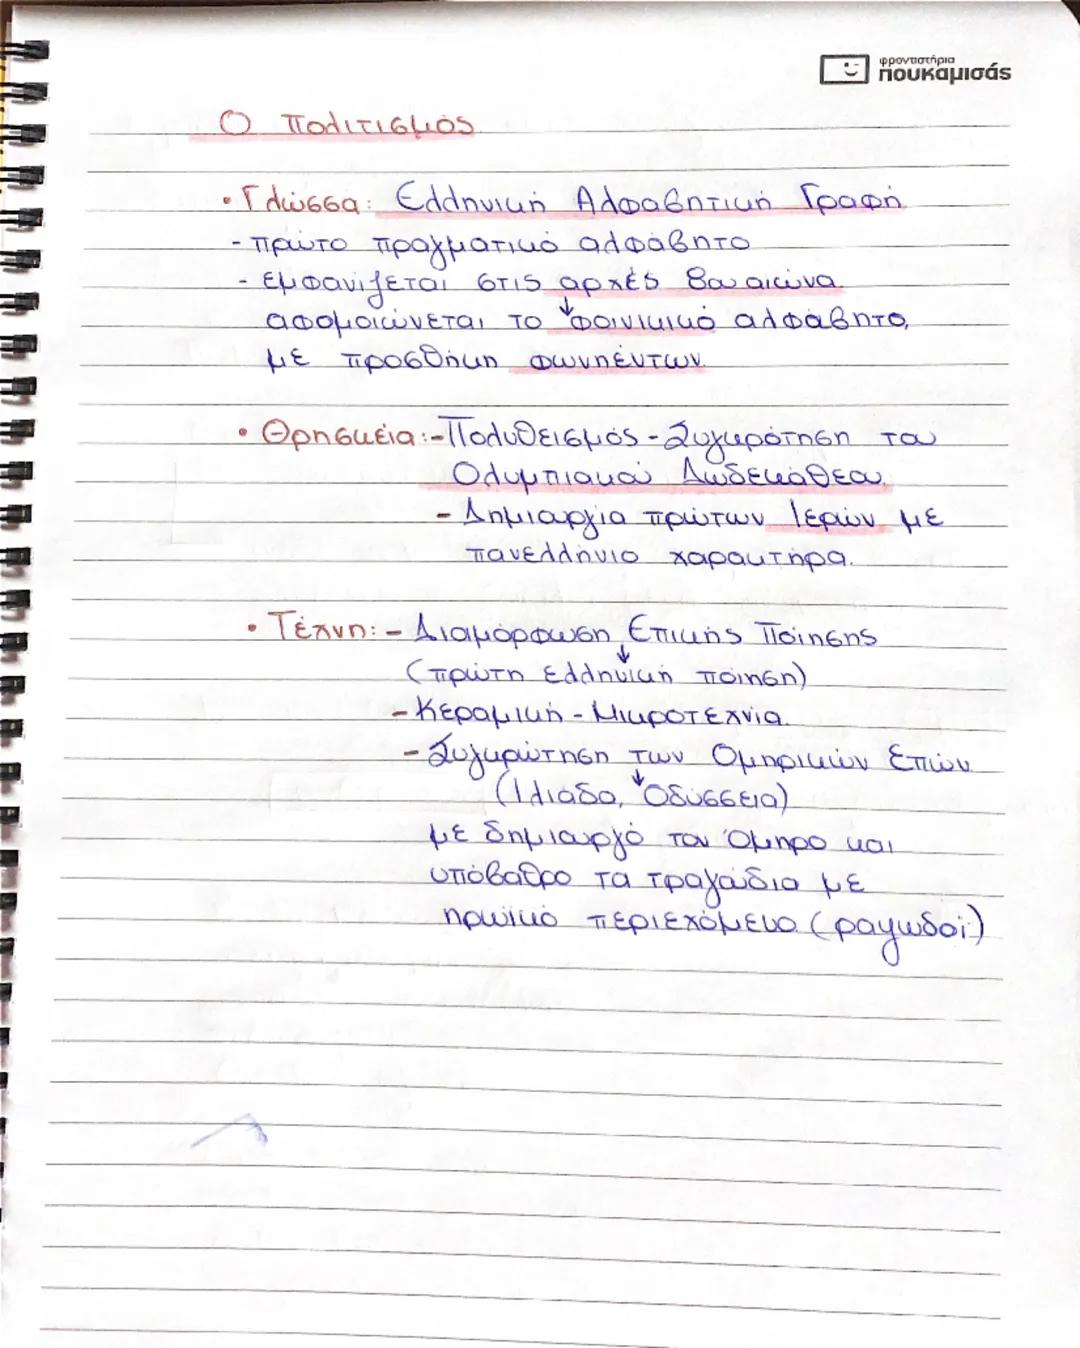 φροντιστήρια
πουκαμισάς
Ο Πολιτισμός
• Γλώσσα: Ελληνική Αλφαβητική Γραφή
- πρώτο πραγματικό αλφάβητο
- εμφανίζεται στις αρχές 8ου αιώνα
αφομοιώνεται το φοινικικό αλφάβητο,
με προσθήκη φωνηέντων
• Θρησκεία: - Πολυθεισμός - Συγκρότηση του
Ολυμπιακού Δωδεκάθεου
- Δημιουργία πρώτων Ιερών με
πανελλήνιο χαρακτήρα.
• Τέχνη: - Διαμόρφωση Επικής Ποίησης
(πρώτη ελληνική ποίηση)
- Κεραμική - Μικροτεχνία
- Συγκρώτηση των Ομηρικών Επών
(Ιλιάδα, Οδύσσεια)
με δημιουργό τον Όμηρο και
υπόβαθρο τα τραγούδια με
ηρωϊκό περιεχόμενο (ραψωδοί)